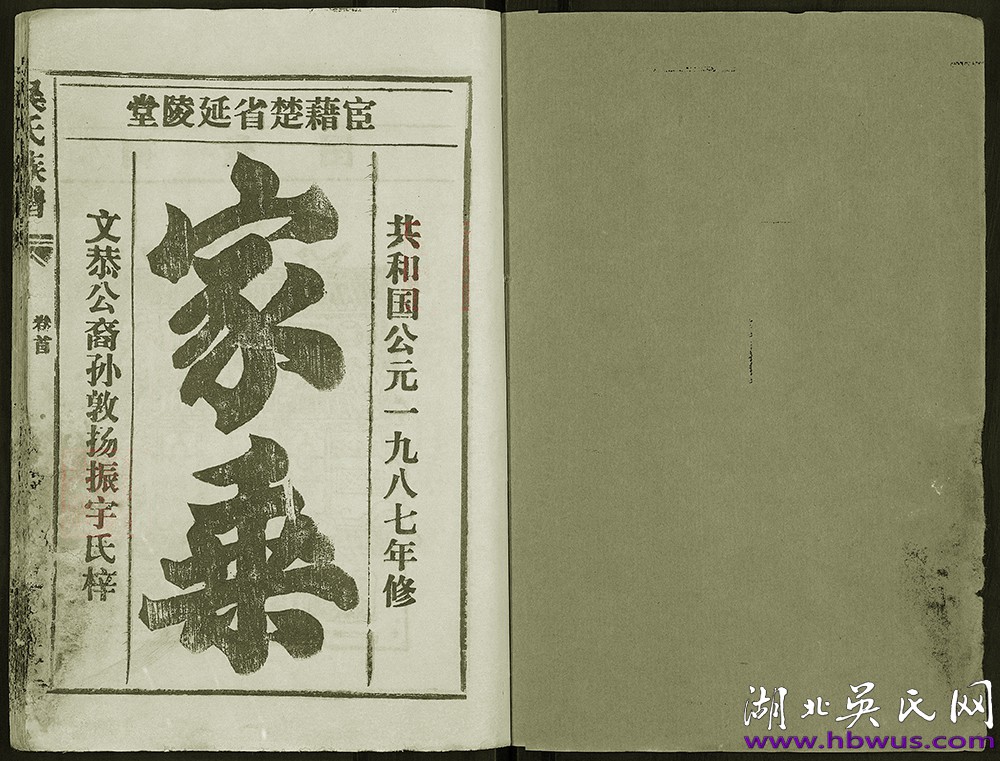 宦藉楚省延陵堂
共和国公元一九八七年修
家乘
文恭公裔孙敦扬振宇氏梓
吴氏族谱
卷首
湖北吴氏网
www.hbwus.com